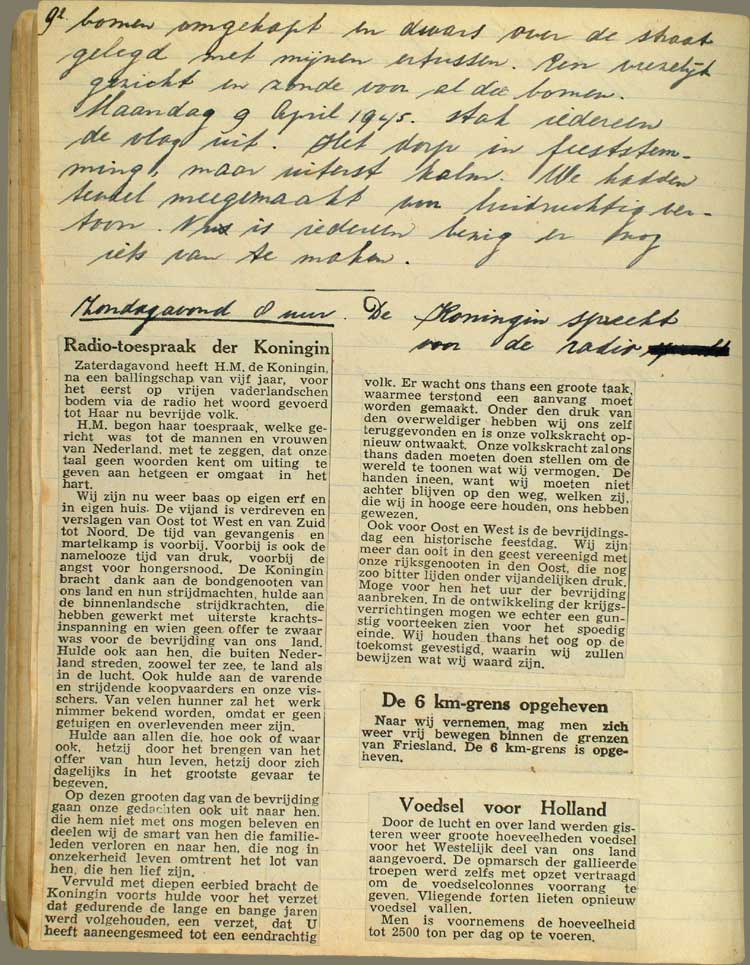 92 bomen omgekapt en dwars over de straat
gelegd met mijnen ertussen. Een vreselijk
gezicht en zonde voor al die bomen.
Maandag 9 April 1945. stak iedereen
de vlag uit. Het dorp in feeststem-
ming, maar uiterst kalm. We hadden
meegemaakt luidruchtig ver-
toon. Nu is iedereen bezig er nog
iets van te maken.
Zondagavond 8 uur. De Koningin spreekt
voor de radio
Radio-toespraak der Koningin
Zaterdagavond heeft H.M. de Koningin,
na een ballingschap van vijf jaar, voor
het eerst op vrijen vaderlandschen
bodem via de radio het woord gevoerd
tot Haar nu bevrijde volk.
H.M. begon haar toespraak, welke ge-
richt was tot de mannen en vrouwen
van Nederland. met te zeggen, dat onze
taal geen woorden kent om uiting te
geven aan hetgeen er omgaat in het
hart.
Wij zijn nu weer baas op eigen erf en
in eigen huis. De vijand is verdreven en
verslagen van Oost tot West en van Zuid
tot Noord. De tijd van gevangenis en
martelkamp is voorbij. Voorbij is ook de
namelooze tijd van druk, voorbij de
angst voor hongersnood. De Koningin
bracht dank aan de bondgenooten van
ons land en hun strijdmachten, hulde aan
de binnenlandsche strijdkrachten, die
hebben gewerkt met uiterste krachts-
inspanning en wien geen offer te zwaar
was voor de bevrijding van ons land.
Hulde ook aan hen, die buiten Neder-
land streden, zoowel ter zee, te land als
in de lucht. Ook hulde aan de varende
en strijdende koopvaarders en onze vis-
schers. Van velen hunner zal het werk
nimmer bekend worden, omdat er geen
getuigen en overlevenden meer zijn.
Hulde aan allen die, hoe ook of waar
ook, hetzij door het brengen van het
offer van hun leven, hetzij door zich
dagelijks in het grootste gevaar te
begeven.
Op dezen grooten dag van de bevrijding
gaan onze gedachten ook uit naar hen.
die hem niet met ons mogen beleven en
deelen wij de smart van hen die familie-
leden verloren en naar hen, die nog in
onzekerheid leven omtrent het lot van
hen, die hen lief zijn.
Vervuld met diepen eerbied bracht de
Koningin voorts hulde voor het verzet
dat gedurende de lange en bange jaren
werd volgehouden, een verzet, dat U
heeft aaneengesmeed tot een eendrachtig
volk. Er wacht ons thans een groote taak,
waarmee terstond een aanvang moet
worden gemaakt. Onder den druk van
den overweldiger hebben wij ons zelf
teruggevonden en is onze volkskracht op-
nieuw ontwaakt. Onze volkskracht zal ons
thans daden moeten doen stellen om de
wereld te toonen wat wij vermogen. De
handen ineen, want wij moeten niet
achter blijven op den weg, welken zij,
die wij in hooge eere houden, ons hebben
gewezen.
Ook voor Oost en West is de bevrijdings-
dag een historische feestdag. Wij zijn
meer dan ooit in den geest vereenigd met
onze rijksgenooten in den Oost, die nog
zoo bitter lijden onder vijandelijken druk.
Moge voor hen het uur der bevrijding
aanbreken. In de ontwikkeling der krijgs-
verrichtingen mogen we echter een gun-
stig voorteeken zien voor het spoedig
einde. Wij houden thans het oog op de
toekomst gevestigd, waarin wij zullen
bewijzen wat wij waard zijn.
De 6 km-grens opgeheven
Naar wij vernemen, mag men zich
weer vrij bewegen binnen de grenzen
van Friesland. De 6 km-grens is opge-
heven.
Voedsel voor Holland
Door de lucht en over land werden gis-
teren weer groote hoeveelheden voedsel
voor het Westelijk deel van ons land
aangevoerd. De opmarsch der gallieerde
troepen werd zelfs met opzet vertraagd
om de voedselcolonnes voorrang te
geven. Vliegende forten lieten opnieuw
voedsel vallen.
Men is voornemens de hoeveelheid
tot 2500 ton per dag op te voeren.